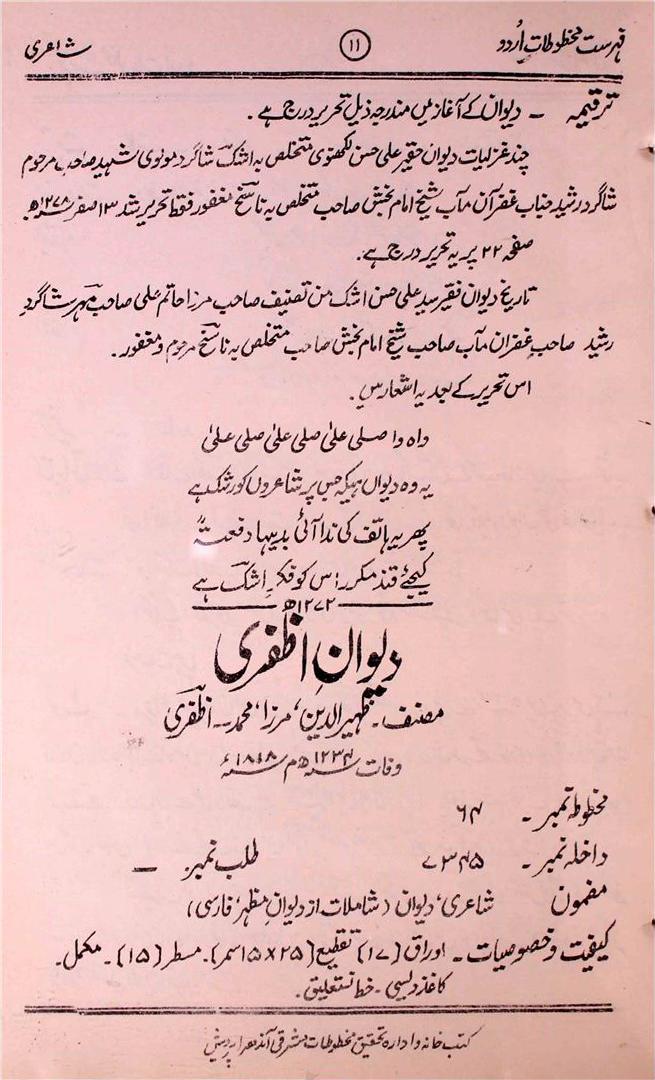 فہرست مخطوطات اُردو
۱۱
شاعری
ترقیمہ ۔ دیوان کے آغاز میں مندرجہ ذیل تحریر درج ہے ۔
چند غزلیات دیوان حقیر علی حسن لکھنوی متخلص بہ اشک شاگرد مولوی شہید صاحب مرحوم
شاگرد رشید جناب غفران مآب شیخ امام بخش صاحب متخلص بہ ناسخ مغفور فقط تحریر شد ۱۳ صفر سنہ ۱۲۷۸ھ
صفحہ ۲۲ پر یہ تحریر درج ہے :
تاریخ دیوان فقیر سید علی حسن اشک من تصنیف صاحب مرزا حاتم علی صاحب مہر شاگردِ
رشید صاحب غفران مآب صاحب شیخ امام بخش صاحب متخلص بہ ناسخ مرحوم و مغفور ۔
اس تحریر کے بعد یہ اشعار ہیں ۔
واہ وا صلی علیٰ صلی علیٰ صلی علیٰ
یہ وہ دیواں ہیگہ جس پر شاعروں کو رشک ہے
پھر یہ ہاتف کی ندا آئی بدیہا دفعتہً
کیجئے قند مکرر اس کو فکرِ اشک ہے
۱۲۷۲ھ
دیوانِ اظفری
مصنف ۔ ظہیر الدین، مرزا، محمد ۔ اظفری
وفات سنہ ۱۲۳۴ھ م سنہ ۱۸۱۸ء
مخطوطہ نمبر ۔ ۶۴
داخلہ نمبر ۔ ۷۳۴۵ طلب نمبر ۔ —
مضمون شاعری، دیوان (شاملات از دیوانِ مظہر، فارسی)
کیفیت و خصوصیات ۔ اوراق (۱۷) تقطیع (۲۵×۱۵سمر)۔ مسطر (۱۵)۔ مکمل ۔
کاغذ دیسی ۔ خط نستعلیق ۔
کتب خانہ و ادارہ تحقیق مخطوطات مشرقی آندھرا پردیش